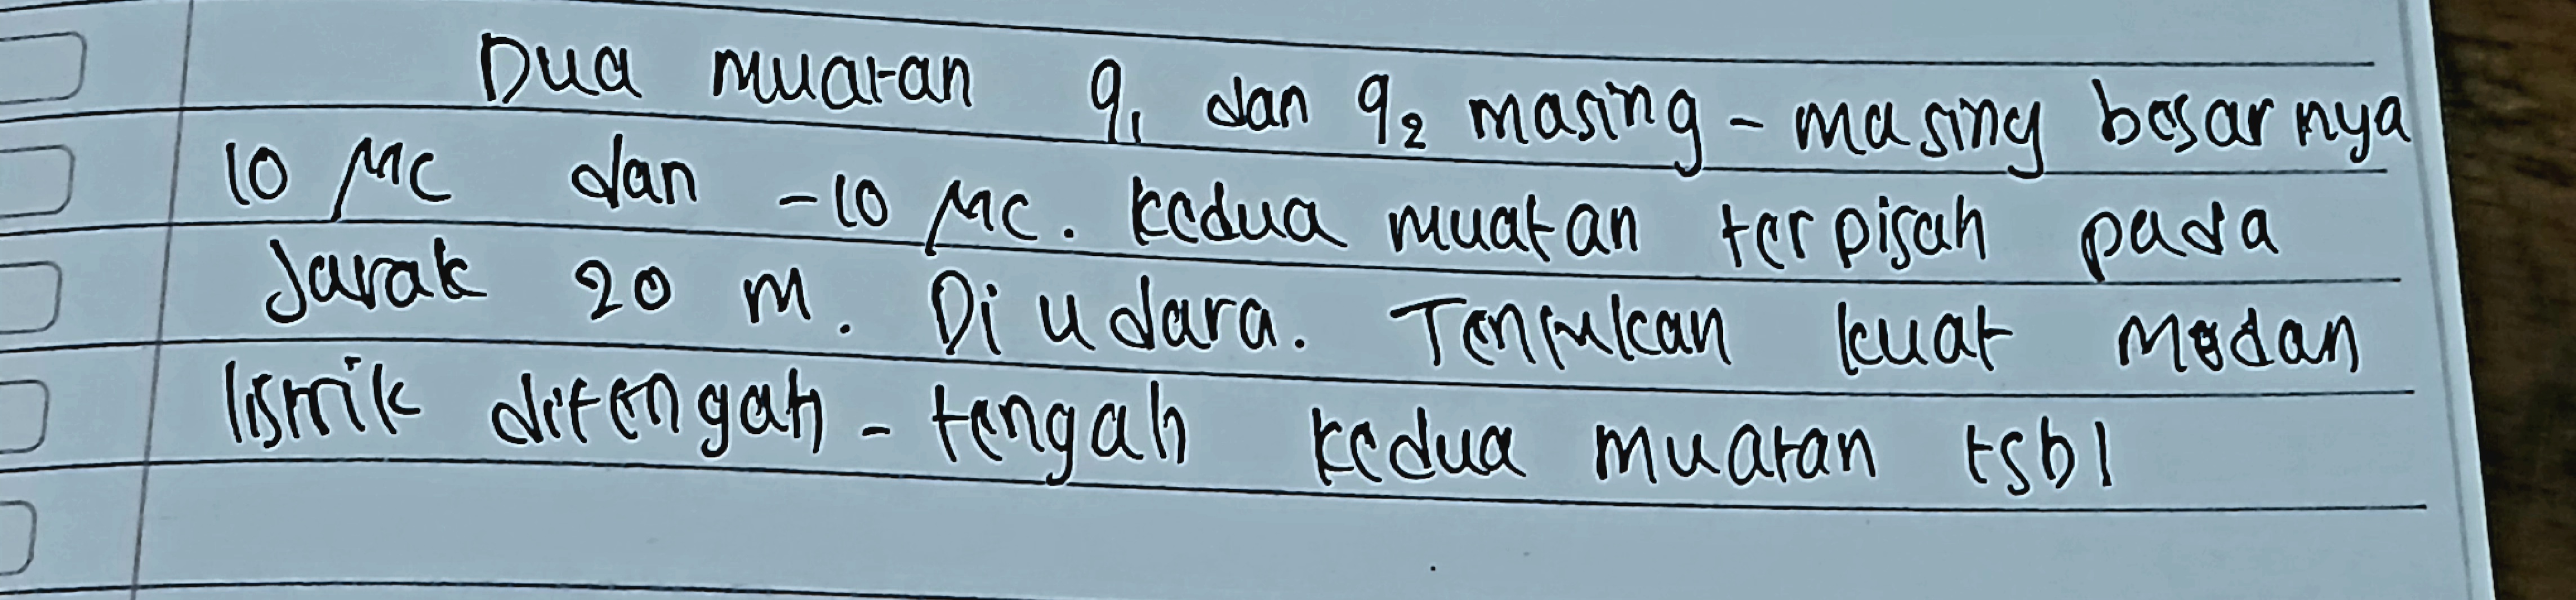 Dua muatan q₁ dan q₂ masing-masing besarnya
10 μC dan -10 μC. Kedua muatan terpisah pada
Jarak 20 m. Di udara. Tentukan kuat medan
listrik ditengah-tengah kedua muatan tsb!